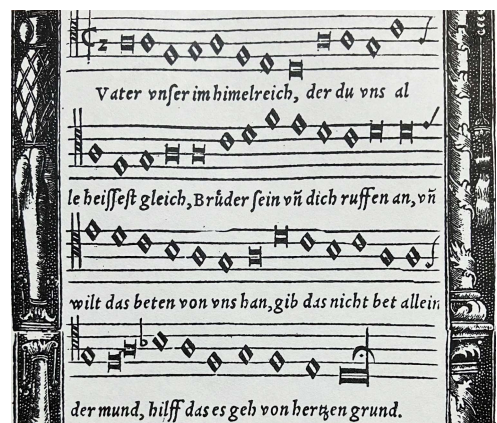 Vater vnser im himelreich, der du vns al
le heissest gleich, Brůder sein vn̄ dich ruffen an, vn̄
wilt das beten von vns han, gib das nicht bet allein
der mund, hilff das es geh von hertzen grund.